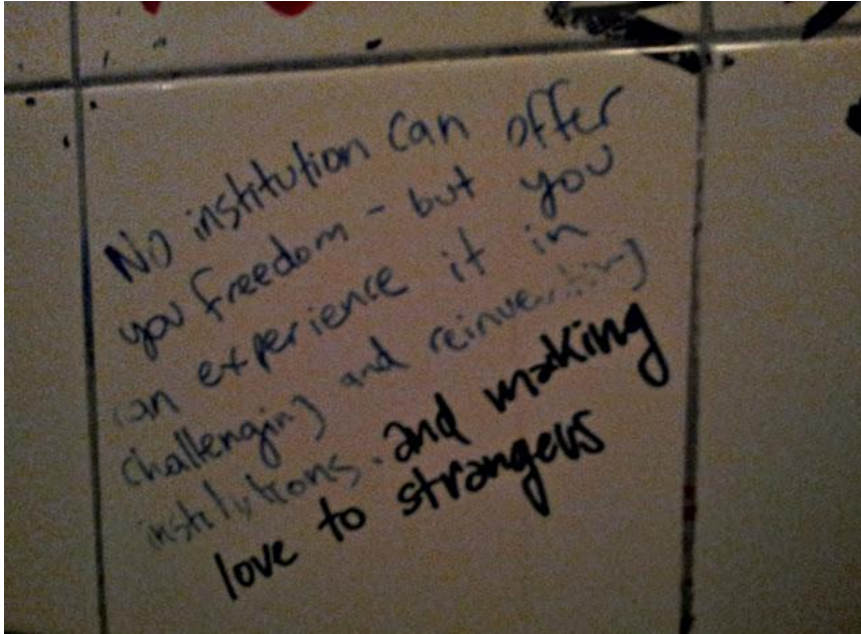 No institution can offer
you freedom - but you
can experience it in
challenging and reinventing
institutions. and making
love to strangers